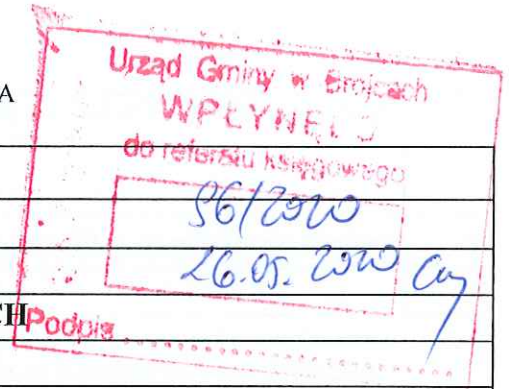 A
Urząd Gminy w Brojcach
WPŁYNĘŁO
do referatu księgowego
96/2020
26.05.2020
CH
Podpis